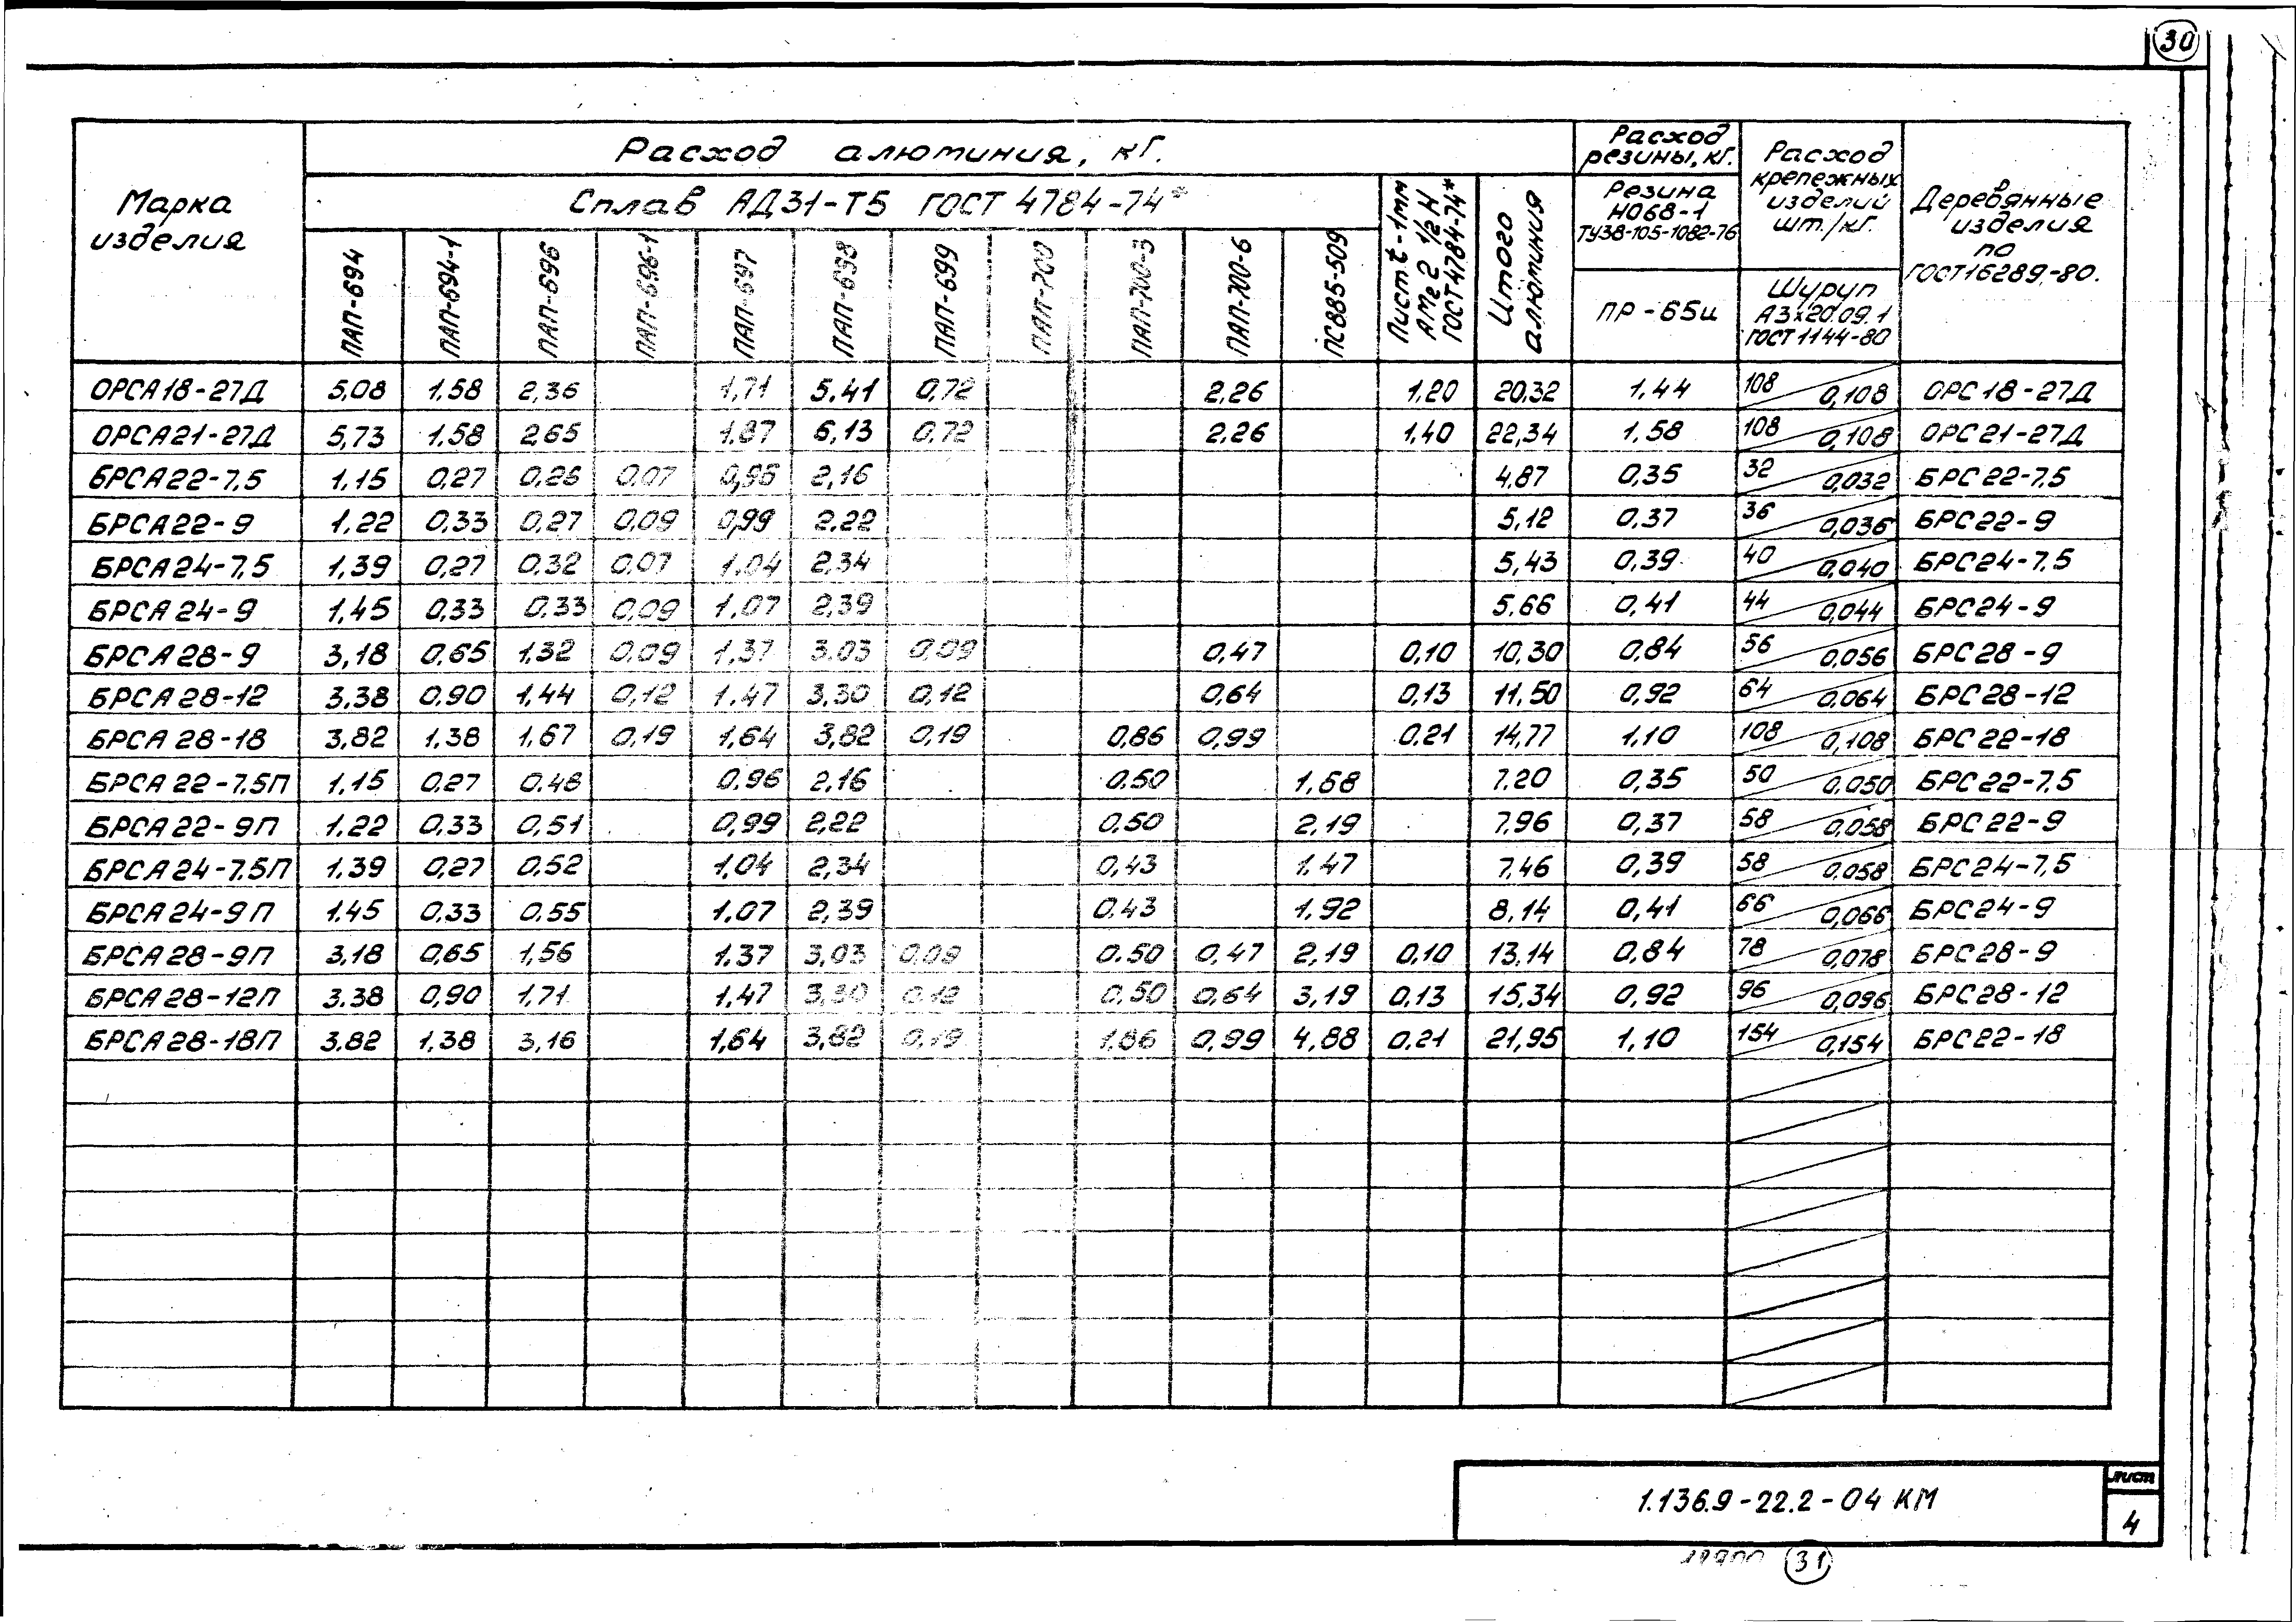 30
Марка изделия
Расход алюминия, кг.
Расход резины, кг.
Расход крепежных изделий шт./кг.
Деревянные изделия по ГОСТ16289-80.
Сплав АД31-Т5 ГОСТ 4784-74*
Лист t-1мм АМг2 1/2Н ГОСТ4784-74*
Итого алюминия
Резина НО68-1 ТУ38-105-1082-76
ПАП-694 ПАП-694-1 ПАП-696 ПАП-696-1 ПАП-697 ПАП-698 ПАП-699 ПАП-700 ПАП-700-3 ПАП-700-6 ПС885-509
ПР-65ш
Шуруп А3х20.09.1 ГОСТ 1144-80
ОРСА18-27Д 5,08 1,58 2,36 1,71 5.41 0,72 2,26 1,20 20,32 1,44 108 0,108 ОРС18-27Д
ОРСА21-27Д 5,73 1,58 2,65 1,87 6,13 0,72 2,26 1,40 22,34 1,58 108 0,108 ОРС21-27Д
БРСА22-7,5 1,15 0,27 0,26 0,07 0,96 2,16 4,87 0,35 32 0,032 БРС22-7,5
БРСА22-9 1,22 0,33 0,27 0,09 0,99 2,22 5,12 0,37 36 0,036 БРС22-9
БРСА24-7,5 1,39 0,27 0,32 0,07 1,04 2,34 5,43 0,39 40 0,040 БРС24-7,5
БРСА24-9 1,45 0,33 0,33 0,09 1,07 2,39 5.66 0,41 44 0,044 БРС24-9
БРСА28-9 3,18 0,65 1,32 0,09 1,37 3.03 0,09 0,47 0,10 10,30 0,84 56 0,056 БРС28-9
БРСА28-12 3.38 0,90 1,44 0,12 1,47 3,30 0,12 0,64 0,13 11,50 0,92 64 0,064 БРС28-12
БРСА28-18 3,82 1,38 1,67 0,19 1,64 3,82 0,19 0,86 0,99 0.21 14,77 1,10 108 0,108 БРС22-18
БРСА22-7,5П 1,15 0,27 0.48 0,96 2,16 0.50 1,68 7.20 0,35 50 0,050 БРС22-7,5
БРСА22-9П 1,22 0,33 0,51 0,99 2,22 0,50 2,19 7,96 0,37 58 0,058 БРС22-9
БРСА24-7.5П 1,39 0,27 0,52 1,04 2,34 0,43 1.47 7,46 0,39 58 0,058 БРС24-7,5
БРСА24-9П 1.45 0,33 0.55 1,07 2,39 0.43 1.92 8,14 0,41 66 0,066 БРС24-9
БРСА28-9П 3.18 0,65 1,56 1.37 3,03 0,09 0.50 0,47 2,19 0,10 13,14 0,84 78 0,078 БРС28-9
БРСА28-12П 3.38 0,90 1,71 1,47 3,30 0,12 0,50 0,64 3,19 0,13 15,34 0,92 96 0,096 БРС28-12
БРСА28-18П 3.82 1,38 3,16 1,64 3,82 0,19 1,86 0,99 4,88 0.21 21,95 1,10 154 0,154 БРС22-18
1.136.9-22.2-04 КМ
лист
4
31